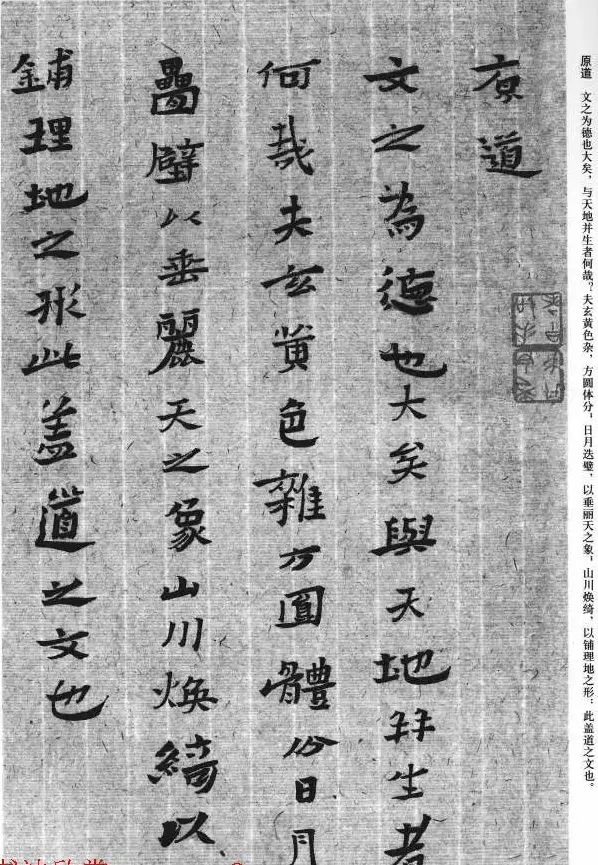 原道 文之为德也大矣，与天地并生者何哉？夫玄黄色杂，方圆体分，日月迭璧，以垂丽天之象；山川焕绮，以铺理地之形：此盖道之文也。
原道
文之為德也大矣與天地并生者
何哉夫玄黄色雜方圓體份日月
疊璧以垂麗天之象山川焕綺以
鋪理地之形此盖道之文也